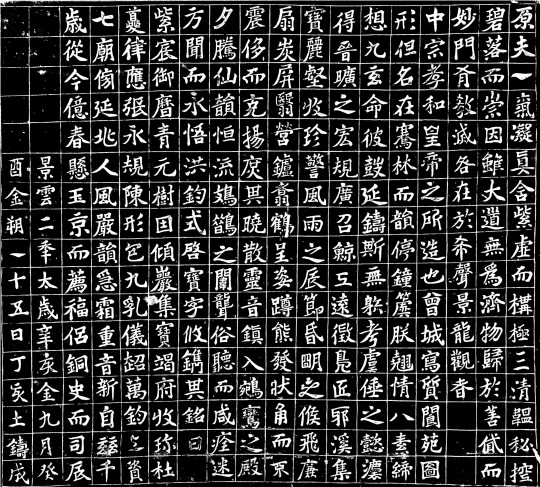 原夫一氣凝真含紫虛而構極三清韞秘控
碧落而崇因雖大道無為濟物歸於善貸而
妙門有教滅咎在於希聲景龍觀者
中宗孝和皇帝之所造也曾城寫質閬苑圖
形但名在騫林而韻停鐘簴朕翹情八素締
想九玄命彼鼓延鑄斯無射考虞倕之懿灋
得晉曠之宏規廣召鯨工遠徵鳧匠耶溪集
寶麗壑收珍警風雨之辰節昏明之候飛廉
扇炭屏翳營鑪翥鶴呈姿蹲熊發狀角而不
震侈而克揚庾其曉散靈音鎮入鵷鸞之殿
夕騰仙韻恒流鳷鵲之闈聾俗聽而咸痊迷
方聞而永悟洪鈞式啓寶字攸鐫其銘曰
紫宸御曆青元樹因傾巖集寶竭府收珍杜
夔律應張永規陳形包九乳儀超萬鈞上資
七廟傍延兆人風嚴韻急霜重音新自茲千
歲從今億春懸玉京而薦福侶銅史而司辰
景雲二年太歲辛亥金九月癸
酉金朔一十五日丁亥土鑄成